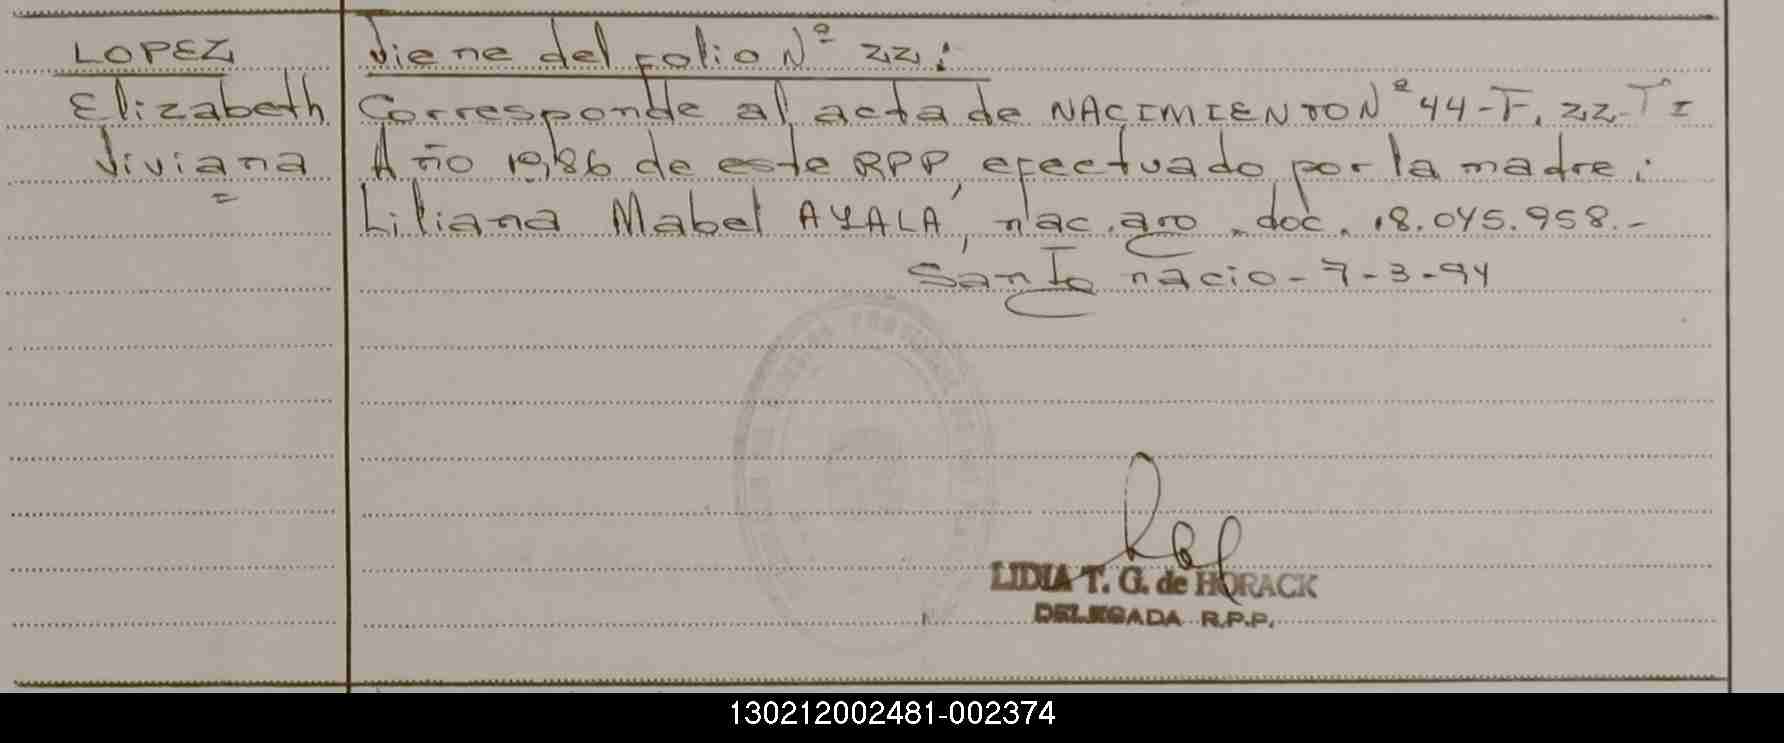 LOPEZ
Elizabeth
Viviana
=
Viene del folio Nº 22:
Corresponde al acta de NACIMIENTO Nº 44-F. 22-Tº I
Año 1986 de este RPP, efectuado por la madre:
Liliana Mabel AYALA, nac. aro. doc. 18.045.958.-
Santo nacio-7-3-94
LIDIA T. G. de HORACK
DELEGADA R.P.P.
130212002481-002374